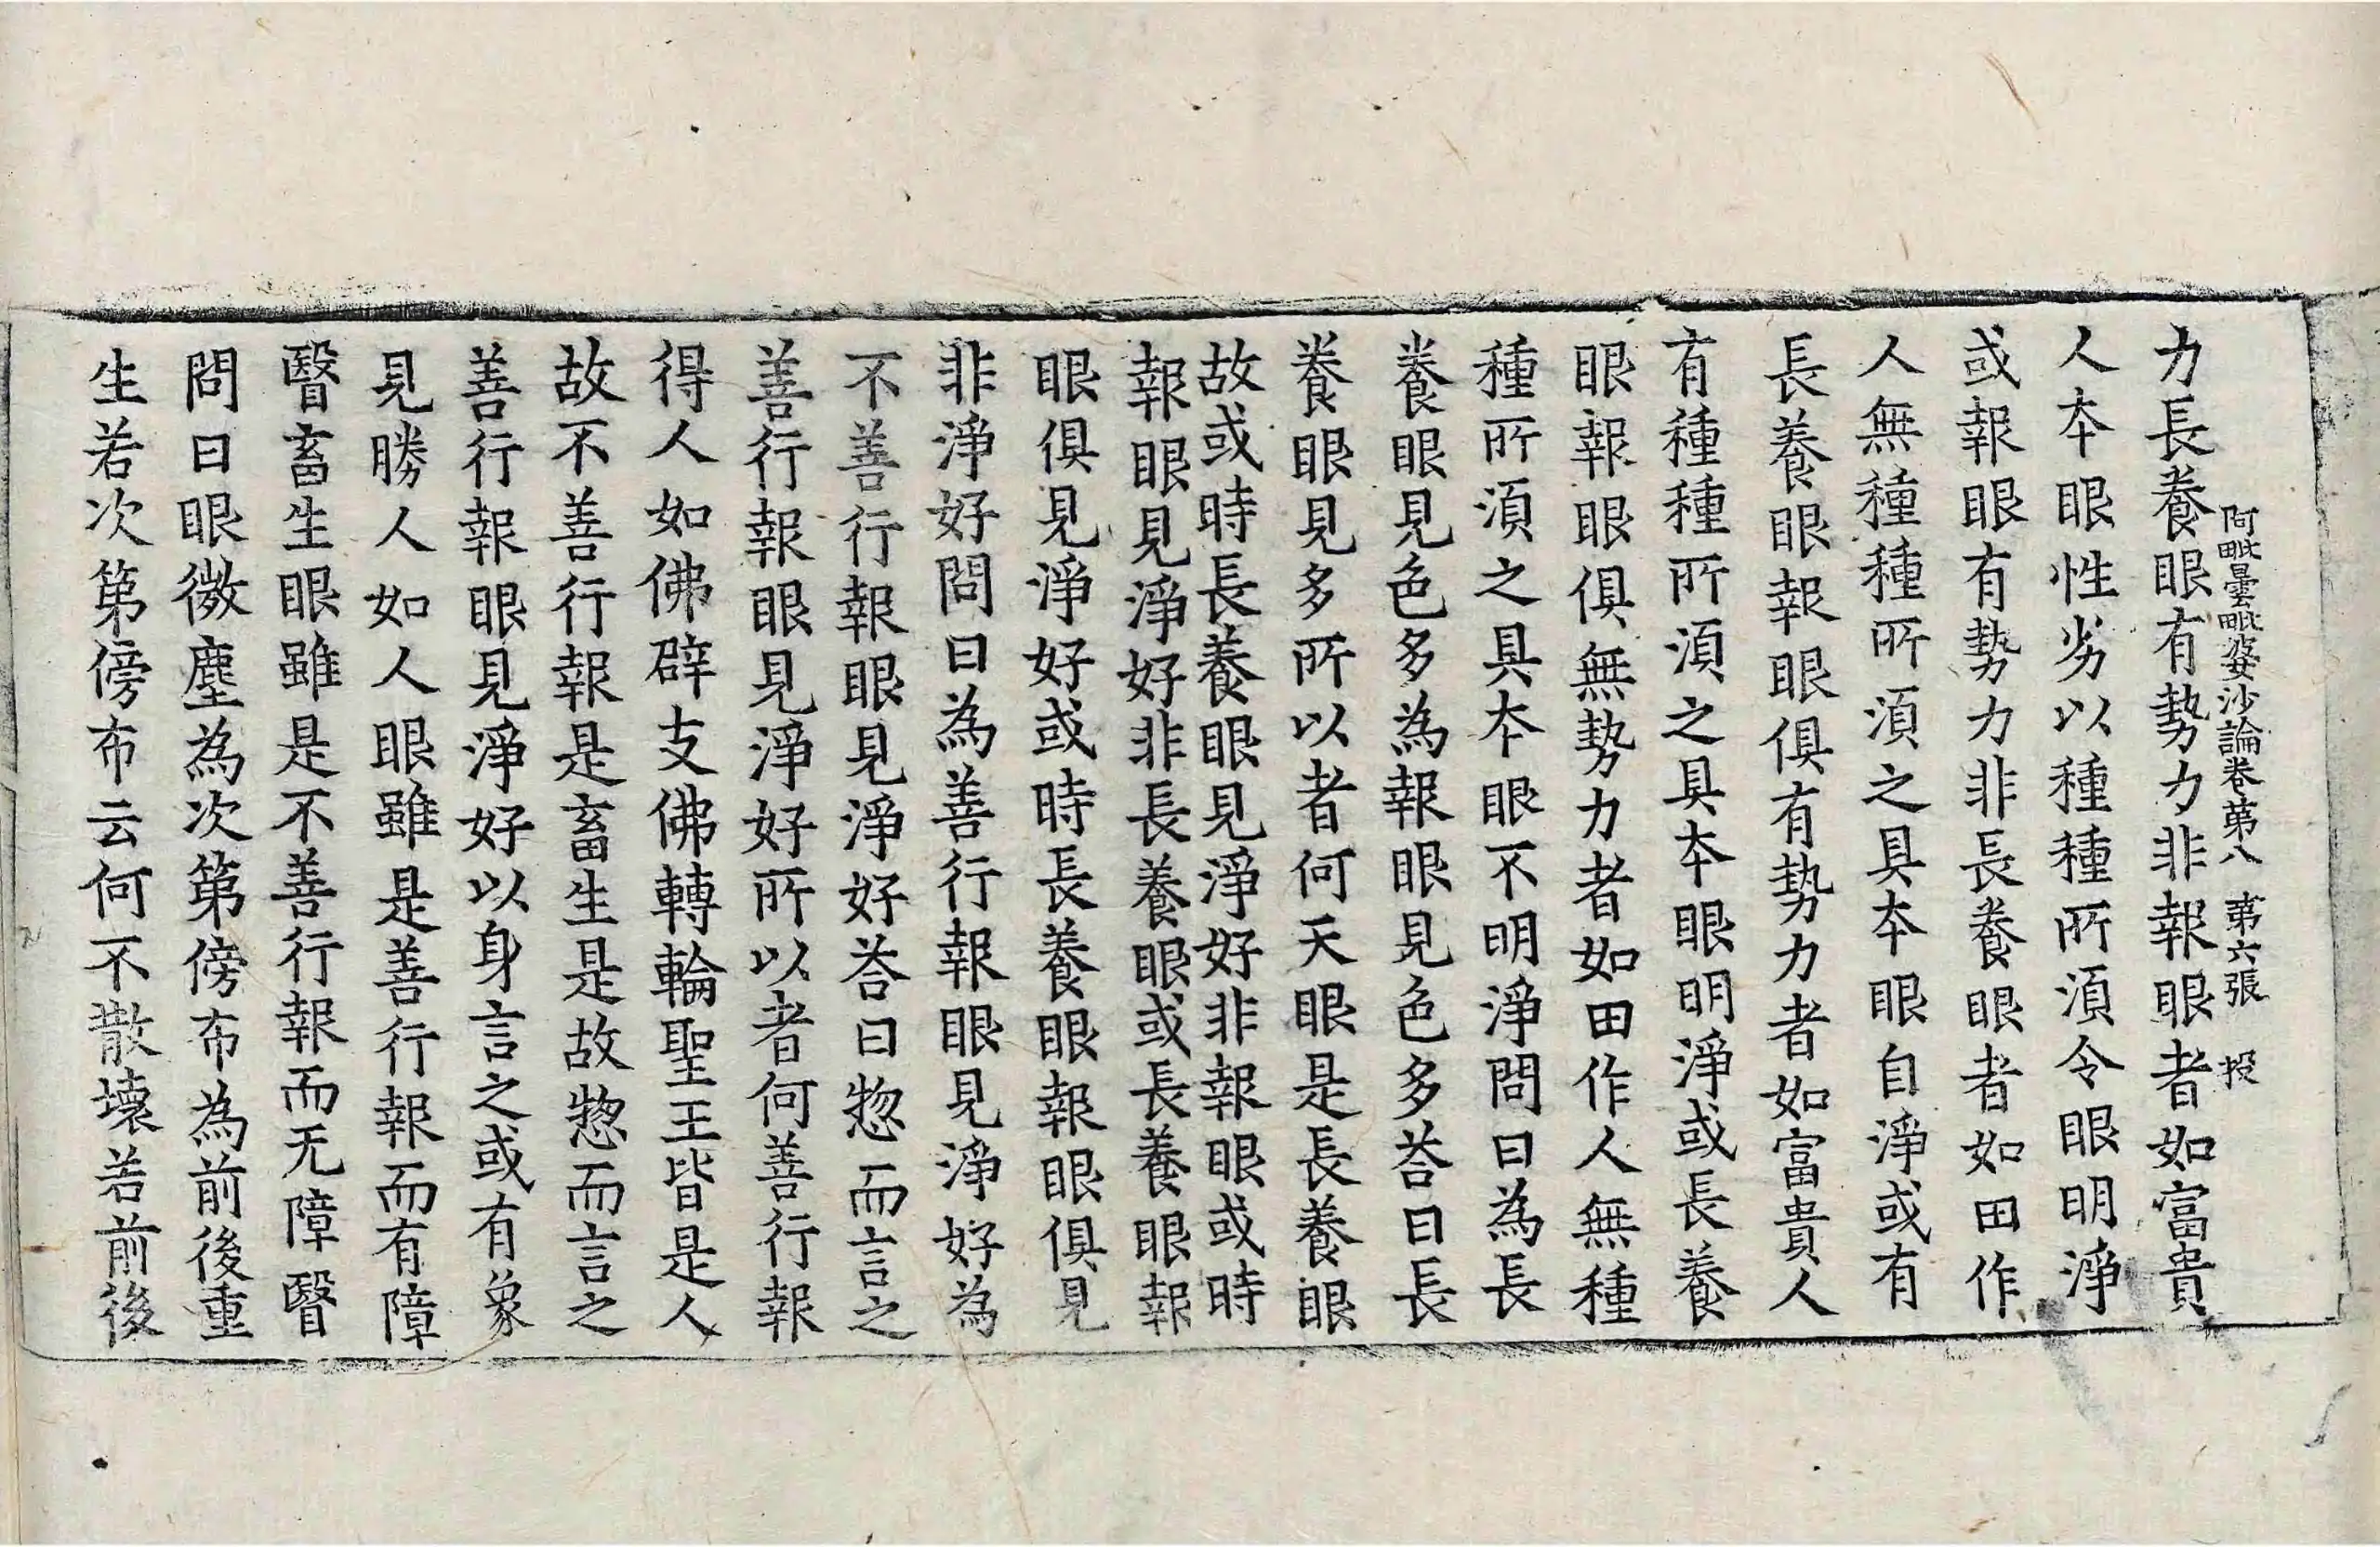 阿毗曇毗婆沙論卷第八　第六張　投
力長養眼有勢力非報眼者如富貴
人本眼性劣以種種所須令眼明淨
或報眼有勢力非長養眼者如田作
人無種種所須之具本眼自淨或有
長養眼報眼俱有勢力者如富貴人
有種種所須之具本眼明淨或長養
眼報眼俱無勢力者如田作人無種
種所須之具本眼不明淨問曰為長
養眼見色多為報眼見色多荅曰長
養眼見多所以者何天眼是長養眼
故或時長養眼見淨好非報眼或時
報眼見淨好非長養眼或長養眼報
眼俱見淨好或時長養眼報眼俱見
非淨好問曰為善行報眼見淨好為
不善行報眼見淨好荅曰惣而言之
善行報眼見淨好所以者何善行報
得人如佛辟支佛轉輪聖王皆是人
故不善行報是畜生是故惣而言之
善行報眼見淨好以身言之或有象
見勝人如人眼雖是善行報而有障
瞖畜生眼雖是不善行報而无障瞖
問曰眼微塵為次第傍布為前後重
生若次第傍布云何不散壞若前後